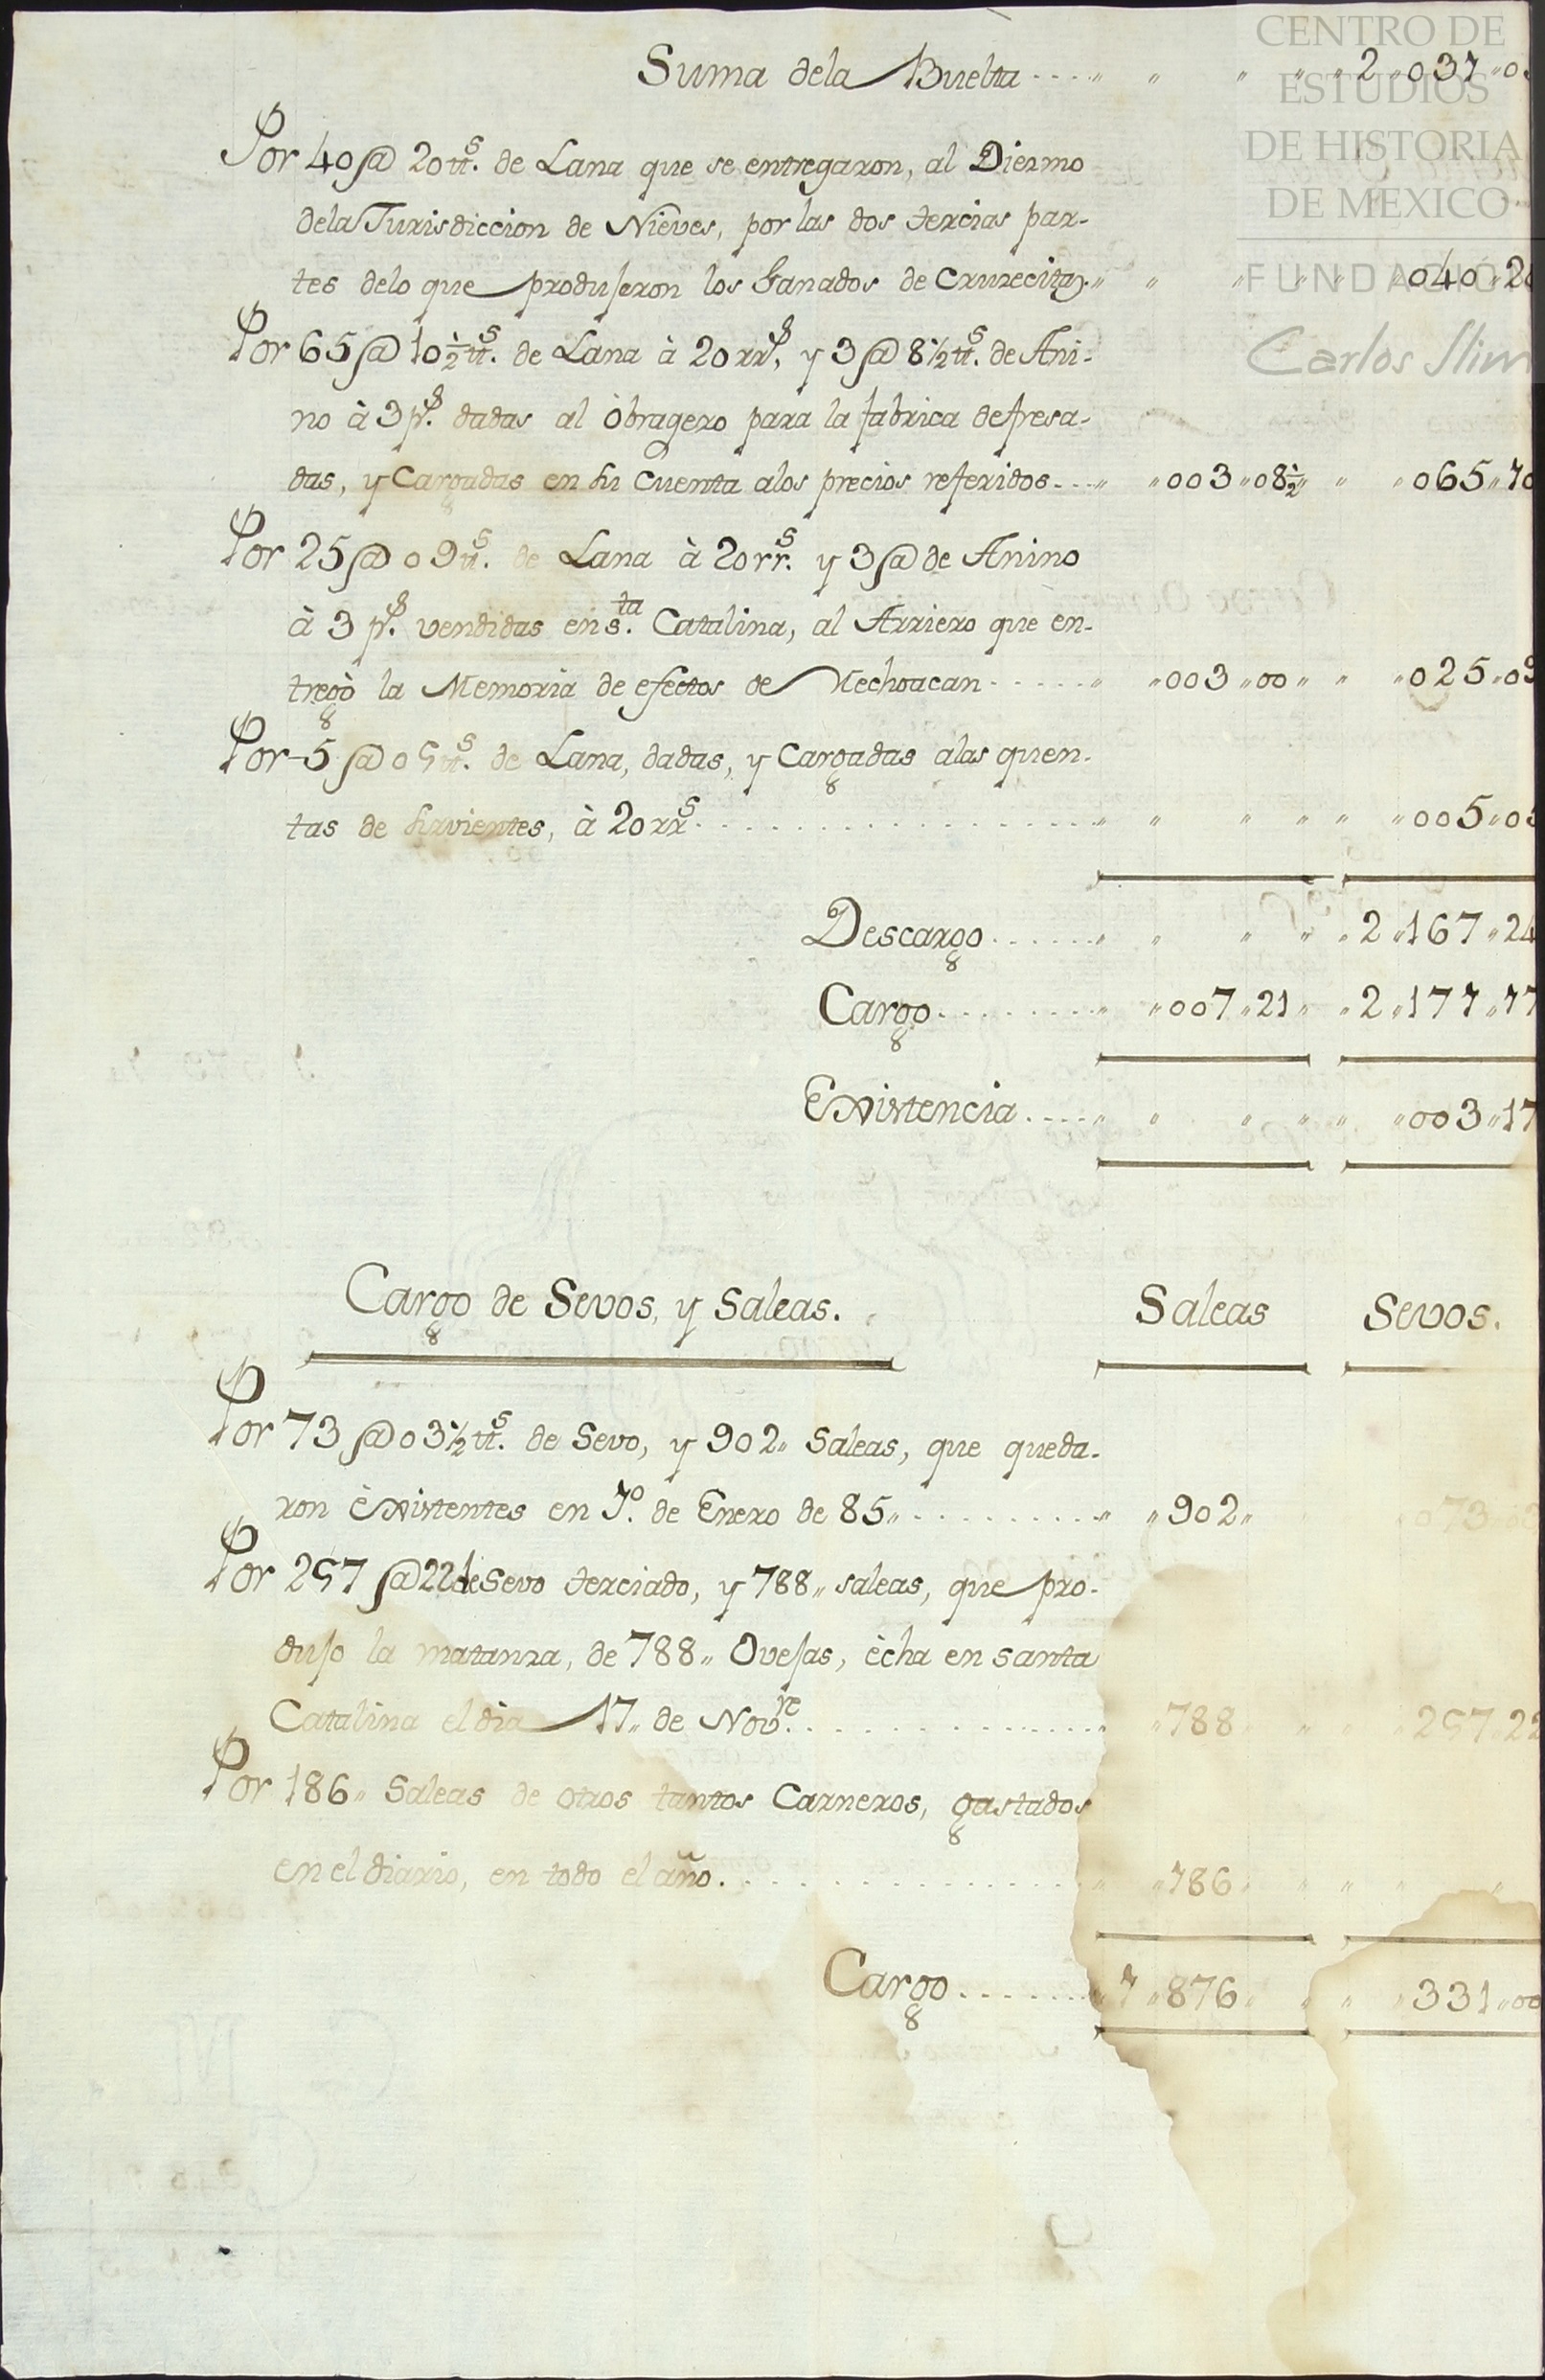 CENTRO DE
ESTUDIOS
DE HISTORIA
DE MEXICO
FUNDACIÓN
Carlos Slim
Suma dela Buelta - - - - " " " " " 2 " 037 " 0
Por 40 @ 20 tt.s de Lana que se entregaron, al Diezmo
dela Jurisdiccion de Nieves, por las dos tercias par-
tes delo que produjeron los Ganados de Cruzecitas. " " " " " 040 " 20
Por 65 @ 10 ½ tt.s de Lana à 20 rr.s, y 3 @ 8 ½ tt.s de Ani-
no à 3 p.s dadas al Obragero para la fabrica de fresa-
das, y Cargadas en su Cuenta alos precios referidos - - - " " 003 " 08 ½ " " " 065 " 10
Por 25 @ 09 tt.s de Lana à 20 rr.s y 3 @ de Anino
à 3 p.s vendidas en S.ta Catalina, al Arriero que en-
tregò la Memoria de efectos de Mechoacan - - - - - " " 003 " 00 " " " 025 " 09
Por 5 @ 05 tt.s de Lana, dadas, y Cargadas alas quen-
tas de Sirvientes, à 20 rr.s - - - - - - - - - " " " " " " 005 " 05
Descargo - - - - - " " " " " 2 " 167 " 24
Cargo - - - - - - " " 007 " 21 " " 2 " 171 " 17
Existencia - - - - " " " " " " 003 " 17
Cargo de Sevos, y Saleas. Saleas Sevos.
Por 73 @ 03 ½ tt.s de Sevo, y 902 " Saleas, que queda-
ron èxistentes en 1.º de Enero de 85 " - - - - - - " " 902 " 073 " 03
Por 257 @ 22 de Sevo terciado, y 788 " saleas, que pro-
dujo la matanza, de 788 " Ovejas, ècha en santa
Catalina el dia 17 " de Nov.re - - - - - - - - " " 788 " " " 257 " 22
Por 186 " Saleas de otros tantos Carneros, gastados
en el diario, en todo el año. - - - - - - - - - " " 186 " " " "
Cargo - - - - - - " 1 " 876 " " " " 331 " 00